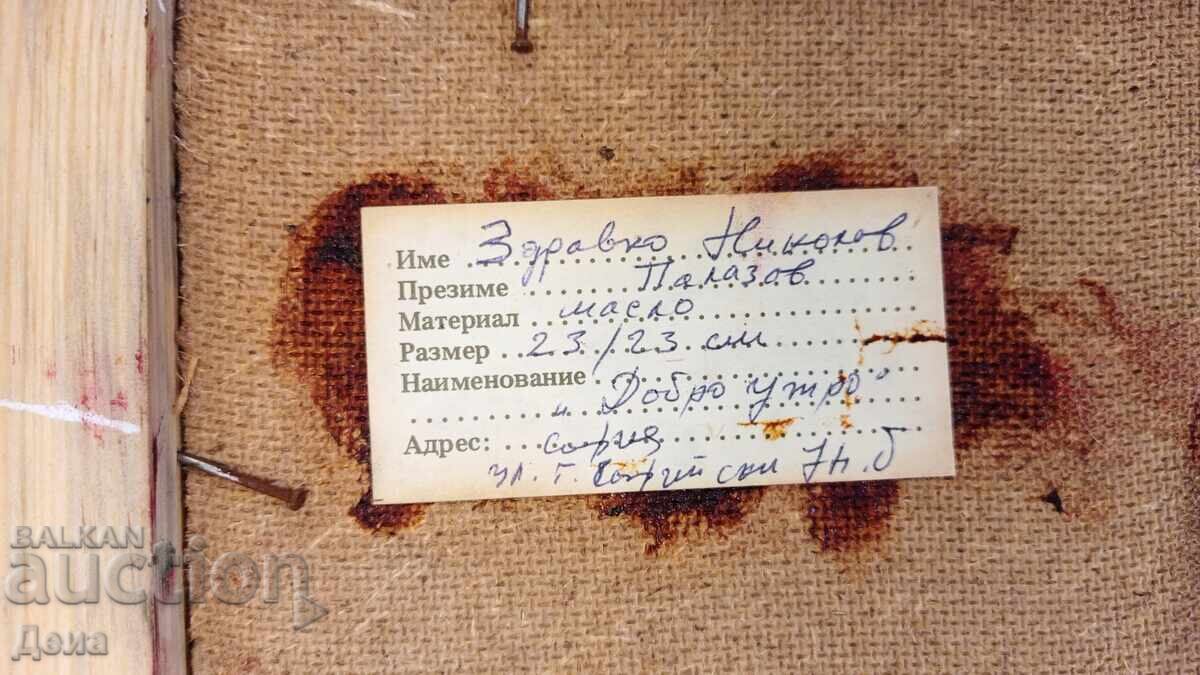 Име Здравко Николов
Презиме Палазов
Материал масло
Размер 23/23 см
Наименование
"Добро утро"
Адрес: София
ул. Г. Софийски 7
BALKAN
auction
Деиа